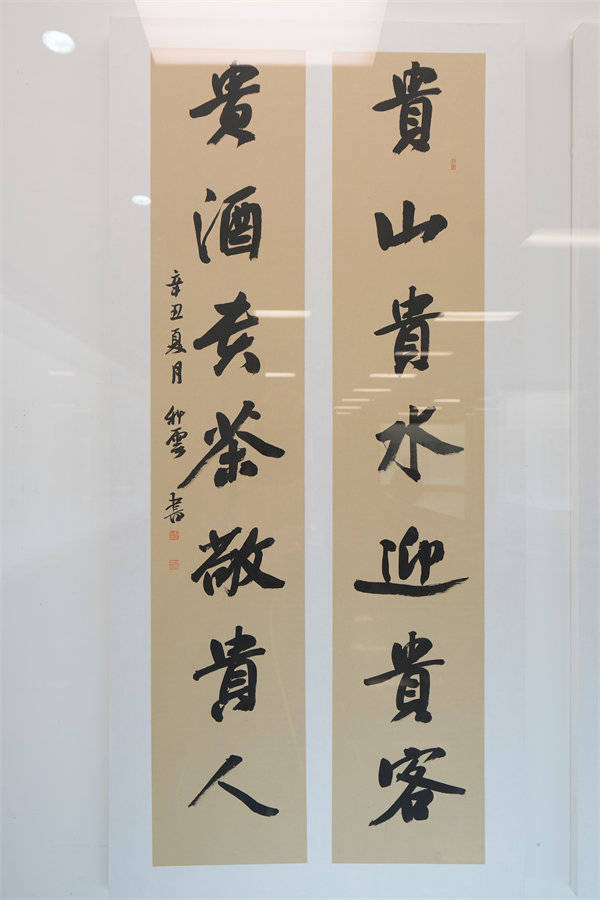 貴山貴水迎貴客
貴酒貴茶敬貴人
辛丑夏月 秋雲 書